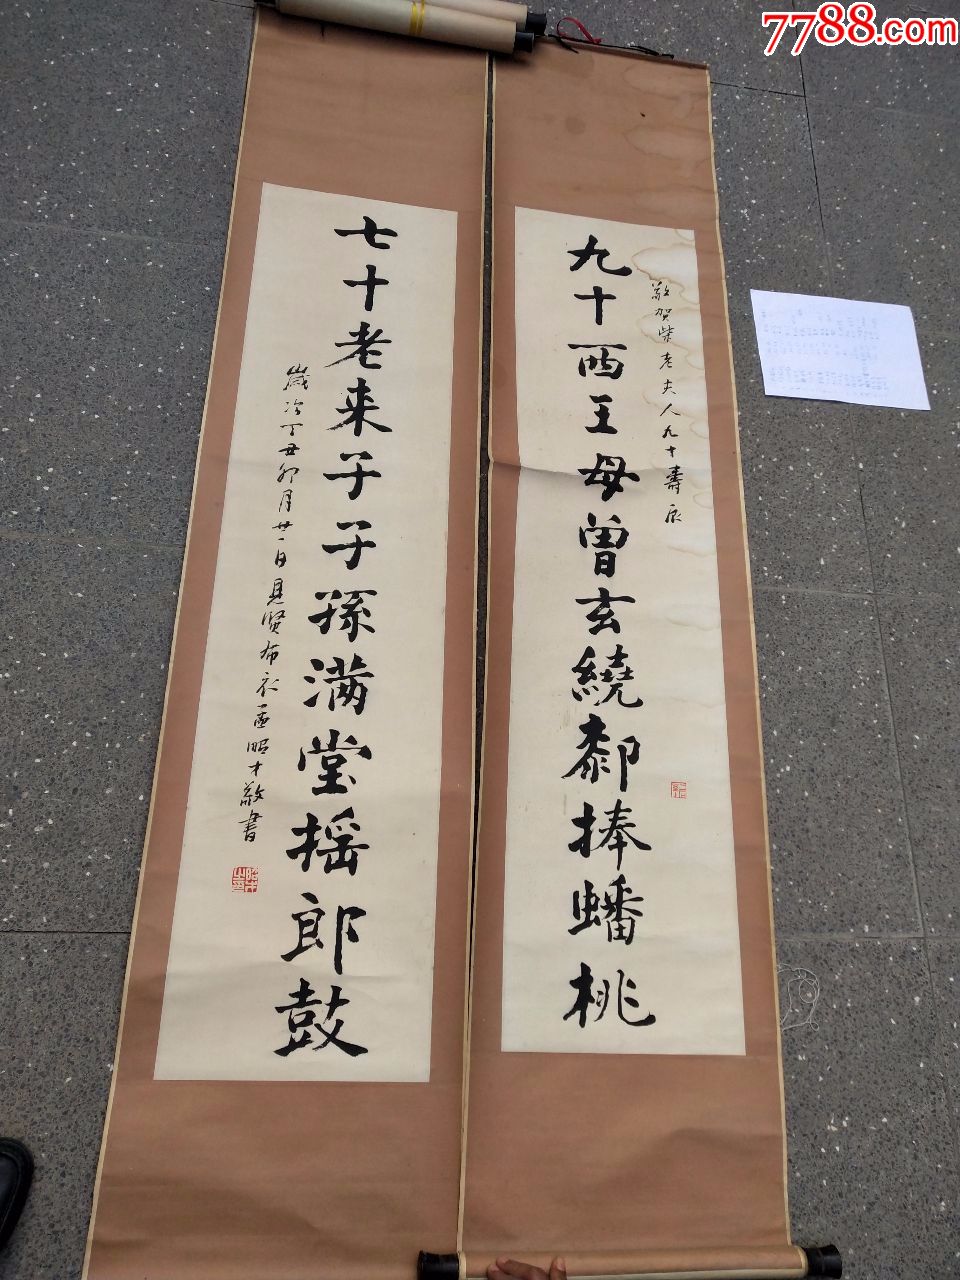 7788.com
敬贺柴老夫人九十壽辰
九十西王母曾玄繞厀捧蟠桃
七十老来子子孫满堂摇郎鼓
歲次丁丑卯月廿一日見贤布衣孟昭才敬書
昭才之印